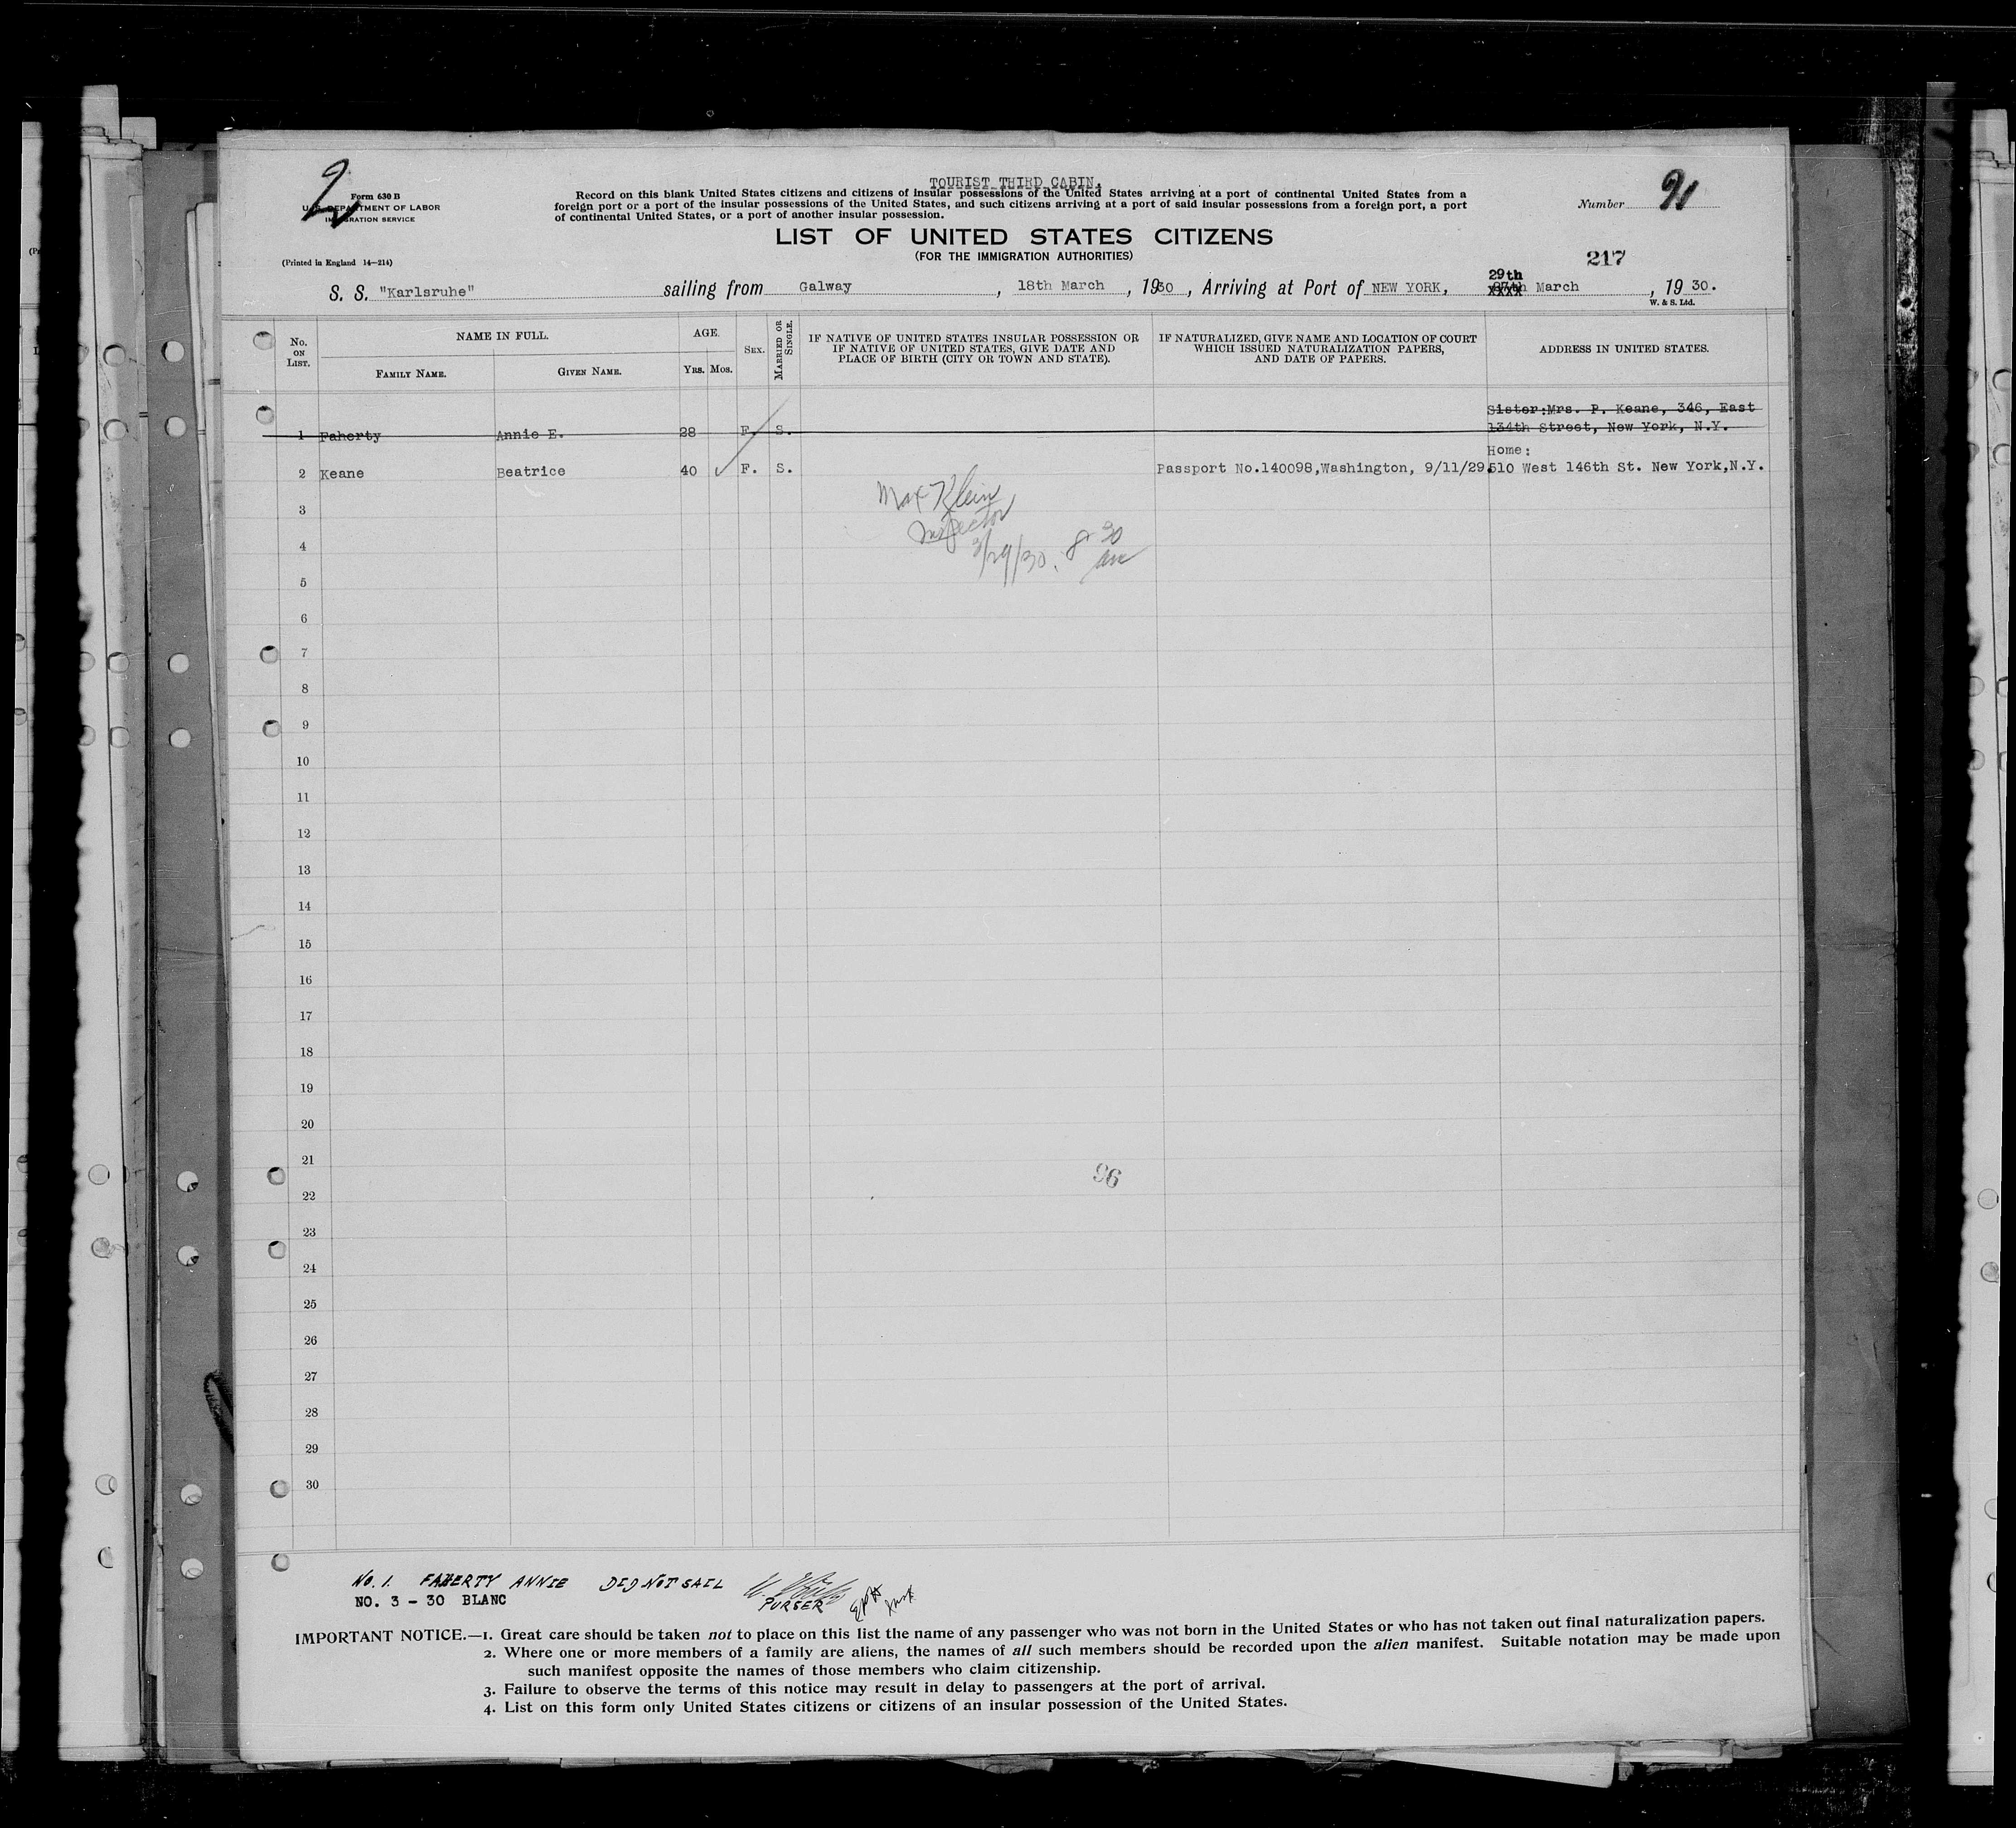 TOURIST THIRD CABIN.
Form 630 B
U. S. DEPARTMENT OF LABOR
IMMIGRATION SERVICE
Record on this blank United States citizens and citizens of insular possessions of the United States arriving at a port of continental United States from a
foreign port or a port of the insular possessions of the United States, and such citizens arriving at a port of said insular possessions from a foreign port, a port
of continental United States, or a port of another insular possession.
Number 91
LIST OF UNITED STATES CITIZENS
(FOR THE IMMIGRATION AUTHORITIES)
217
(Printed in England 14—214)
29th
S. S. "Karlsruhe" sailing from Galway, 18th March, 1930, Arriving at Port of NEW YORK, March, 1930.
W. & S. Ltd.
No. ON LIST.
NAME IN FULL.
FAMILY NAME.
GIVEN NAME.
AGE.
YRS. MOS.
SEX.
MARRIED OR SINGLE.
IF NATIVE OF UNITED STATES INSULAR POSSESSION OR
IF NATIVE OF UNITED STATES, GIVE DATE AND
PLACE OF BIRTH (CITY OR TOWN AND STATE).
IF NATURALIZED, GIVE NAME AND LOCATION OF COURT
WHICH ISSUED NATURALIZATION PAPERS,
AND DATE OF PAPERS.
ADDRESS IN UNITED STATES.
Sister:Mrs. P. Keane, 346, East
1 Faherty Annie E. 28 F. S. 134th Street, New York, N.Y.
Home:
2 Keane Beatrice 40 F. S. Passport No.140098,Washington, 9/11/29. 510 West 146th St. New York,N.Y.
Max Klein
Inspector
3/29/30. 8 30
am
3
4
5
6
7
8
9
10
11
12
13
14
15
16
17
18
19
20
21
96
22
23
24
25
26
27
28
29
30
NO. 1. FAHERTY ANNIE DID NOT SAIL
NO. 3 - 30 BLANC
PURSER
IMPORTANT NOTICE.—1. Great care should be taken not to place on this list the name of any passenger who was not born in the United States or who has not taken out final naturalization papers.
2. Where one or more members of a family are aliens, the names of all such members should be recorded upon the alien manifest. Suitable notation may be made upon
such manifest opposite the names of those members who claim citizenship.
3. Failure to observe the terms of this notice may result in delay to passengers at the port of arrival.
4. List on this form only United States citizens or citizens of an insular possession of the United States.